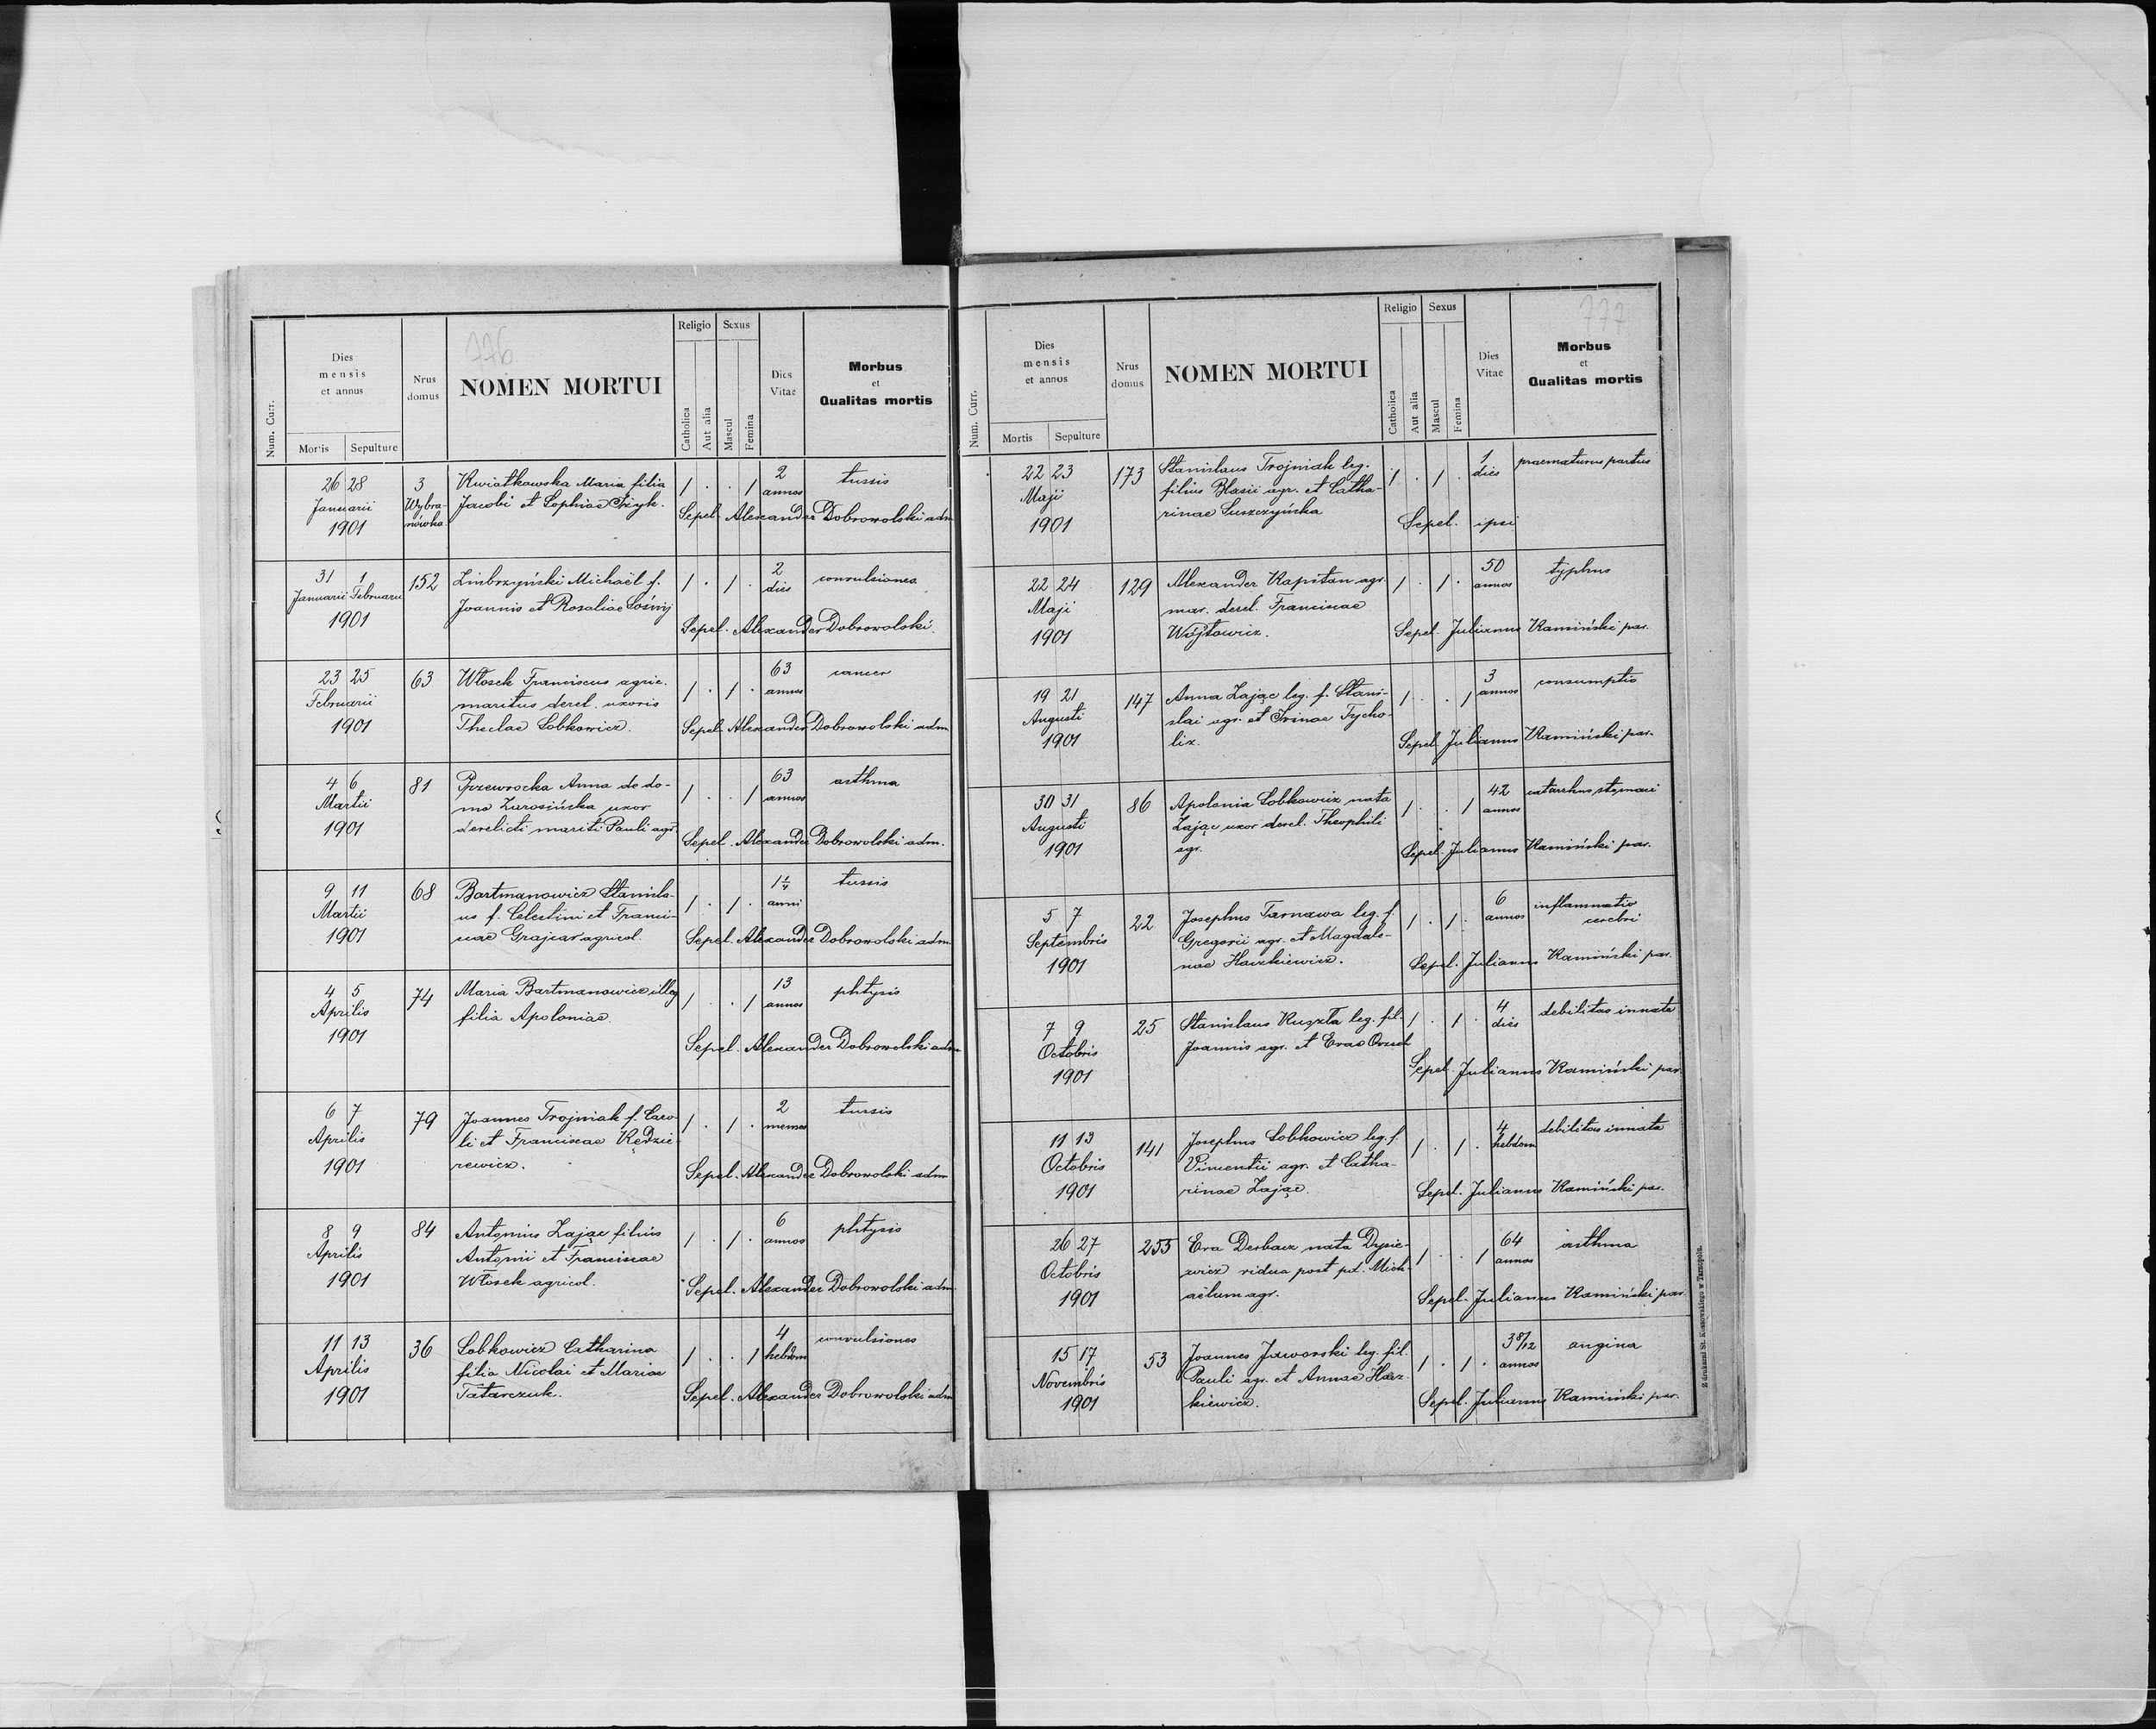 776.
Num. Curr.
Dies
mensis
et annus
Mortis
Sepulture
Nrus
domus
NOMEN MORTUI
Religio
Catholica
Aut alia
Sexus
Mascul
Femina
Dies
Vitae
Morbus
et
Qualitas mortis
26 28
Januarii
1901
3
Wybra-
nówka
Kwiatkowska Maria filia
Jacobi et Sophiae
1 . . 1
2
annos
tussis
Sepel. Alexander Dobrowolski adm
31 1
Januarii Februarii
1901
152
Zimbrzyński Michaël f.
Joannis et Rosaliae
1 . 1 .
2
dies
convulsiones
Sepel. Alexander Dobrowolski.
23 25
Februarii
1901
63
Włosek Franciscus agric.
maritus derel. uxoris
Theclae Sobkowicz.
1 . 1 .
63
annos
cancer
Sepel. Alexander Dobrowolski adm
4 6
Martii
1901
81
Przewrocka Anna de do-
mo Zarosińska uxor
derelicti mariti Pauli agr.
1 . . 1
63
annos
asthma
Sepel. Alexander Dobrowolski adm.
9 11
Martii
1901
68
Bartmanowicz Stanisla-
us f. Celestini et Franci-
scae Grajcar agricol.
1 . 1 .
1 1/4
anni
tussis
Sepel. Alexander Dobrowolski adm
4 5
Aprilis
1901
74
Maria Bartmanowicz illeg
filia Apoloniae.
1 . . 1
13
annos
phtysis
Sepel. Alexander Dobrowolski adm
6 7
Aprilis
1901
79
Joannes Trojniak f. Caro-
li et Franciscae Kędzie-
rewicz.
1 . 1 .
2
menses
tussis
Sepel. Alexander Dobrowolski adm
8 9
Aprilis
1901
84
Antonius Zając filius
Antonii et Franciscae
Włosek agricol.
1 . 1 .
6
annos
phtysis
Sepel. Alexander Dobrowolski adm
11 13
Aprilis
1901
36
Sobkowicz Catharina
filia Nicolai et Mariae
Tatarczuk.
1 . . 1
4
hebdom
convulsiones
Sepel. Alexander Dobrowolski adm
777
Num. Curr.
Dies
mensis
et annus
Mortis
Sepulture
Nrus
domus
NOMEN MORTUI
Religio
Catholica
Aut alia
Sexus
Mascul
Femina
Dies
Vitae
Morbus
et
Qualitas mortis
22 23
Maji
1901
173
Stanislaus Trojniak leg.
filius Blasii agr. et Catha-
rinae Suszczyńska
1 . 1 .
1
dies
praematurus partus
Sepel. ipsi
22 24
Maji
1901
129
Alexander Kapitan agr.
mar. derel. Franciscae
Wójtowicz.
1 . 1 .
50
annos
typhus
Sepel. Julianus Kamiński par.
19 21
Augusti
1901
147
Anna Zając leg. f. Stani-
slai agr. et Irinae Tycho-
liz.
1 . . 1
3
annos
consumptio
Sepel. Julianus Kamiński par.
30 31
Augusti
1901
86
Apolonia Sobkowicz nata
Zając uxor derel. Theophili
agr.
1 . . 1
42
annos
catarrhus stomaci
Sepel. Julianus Kamiński par.
5 7
Septembris
1901
22
Josephus Tarnawa leg. f.
Gregorii agr. et Magdale-
nae Haszkiewicz.
1 . 1 .
6
annos
inflammatio
cerebri
Sepel. Julianus Kamiński par.
7 9
Octobris
1901
25
Stanislaus Kuszla leg. fil.
Joannis agr. et Evae
1 . 1 .
4
dies
debilitas innata
Sepel. Julianus Kamiński par.
11 13
Octobris
1901
141
Josephus Sobkowicz leg. f.
Vincentii agr. et Catha-
rinae Zając.
1 . 1 .
4
hebdom
debilitas innata
Sepel. Julianus Kamiński par.
26 27
Octobris
1901
255
Eva Derbacz nata Dysie-
wicz vidua post pd. Mich-
aëlum agr.
1 . . 1
64
annos
asthma
Sepel. Julianus Kamiński par.
15 17
Novembris
1901
53
Joannes Jaworski leg. fil.
Pauli agr. et Annae Hasz-
kiewicz.
1 . 1 .
3 8/12
annos
angina
Sepel. Julianus Kamiński par.
Z drukarni St. Kossowskiego w Tarnopolu.